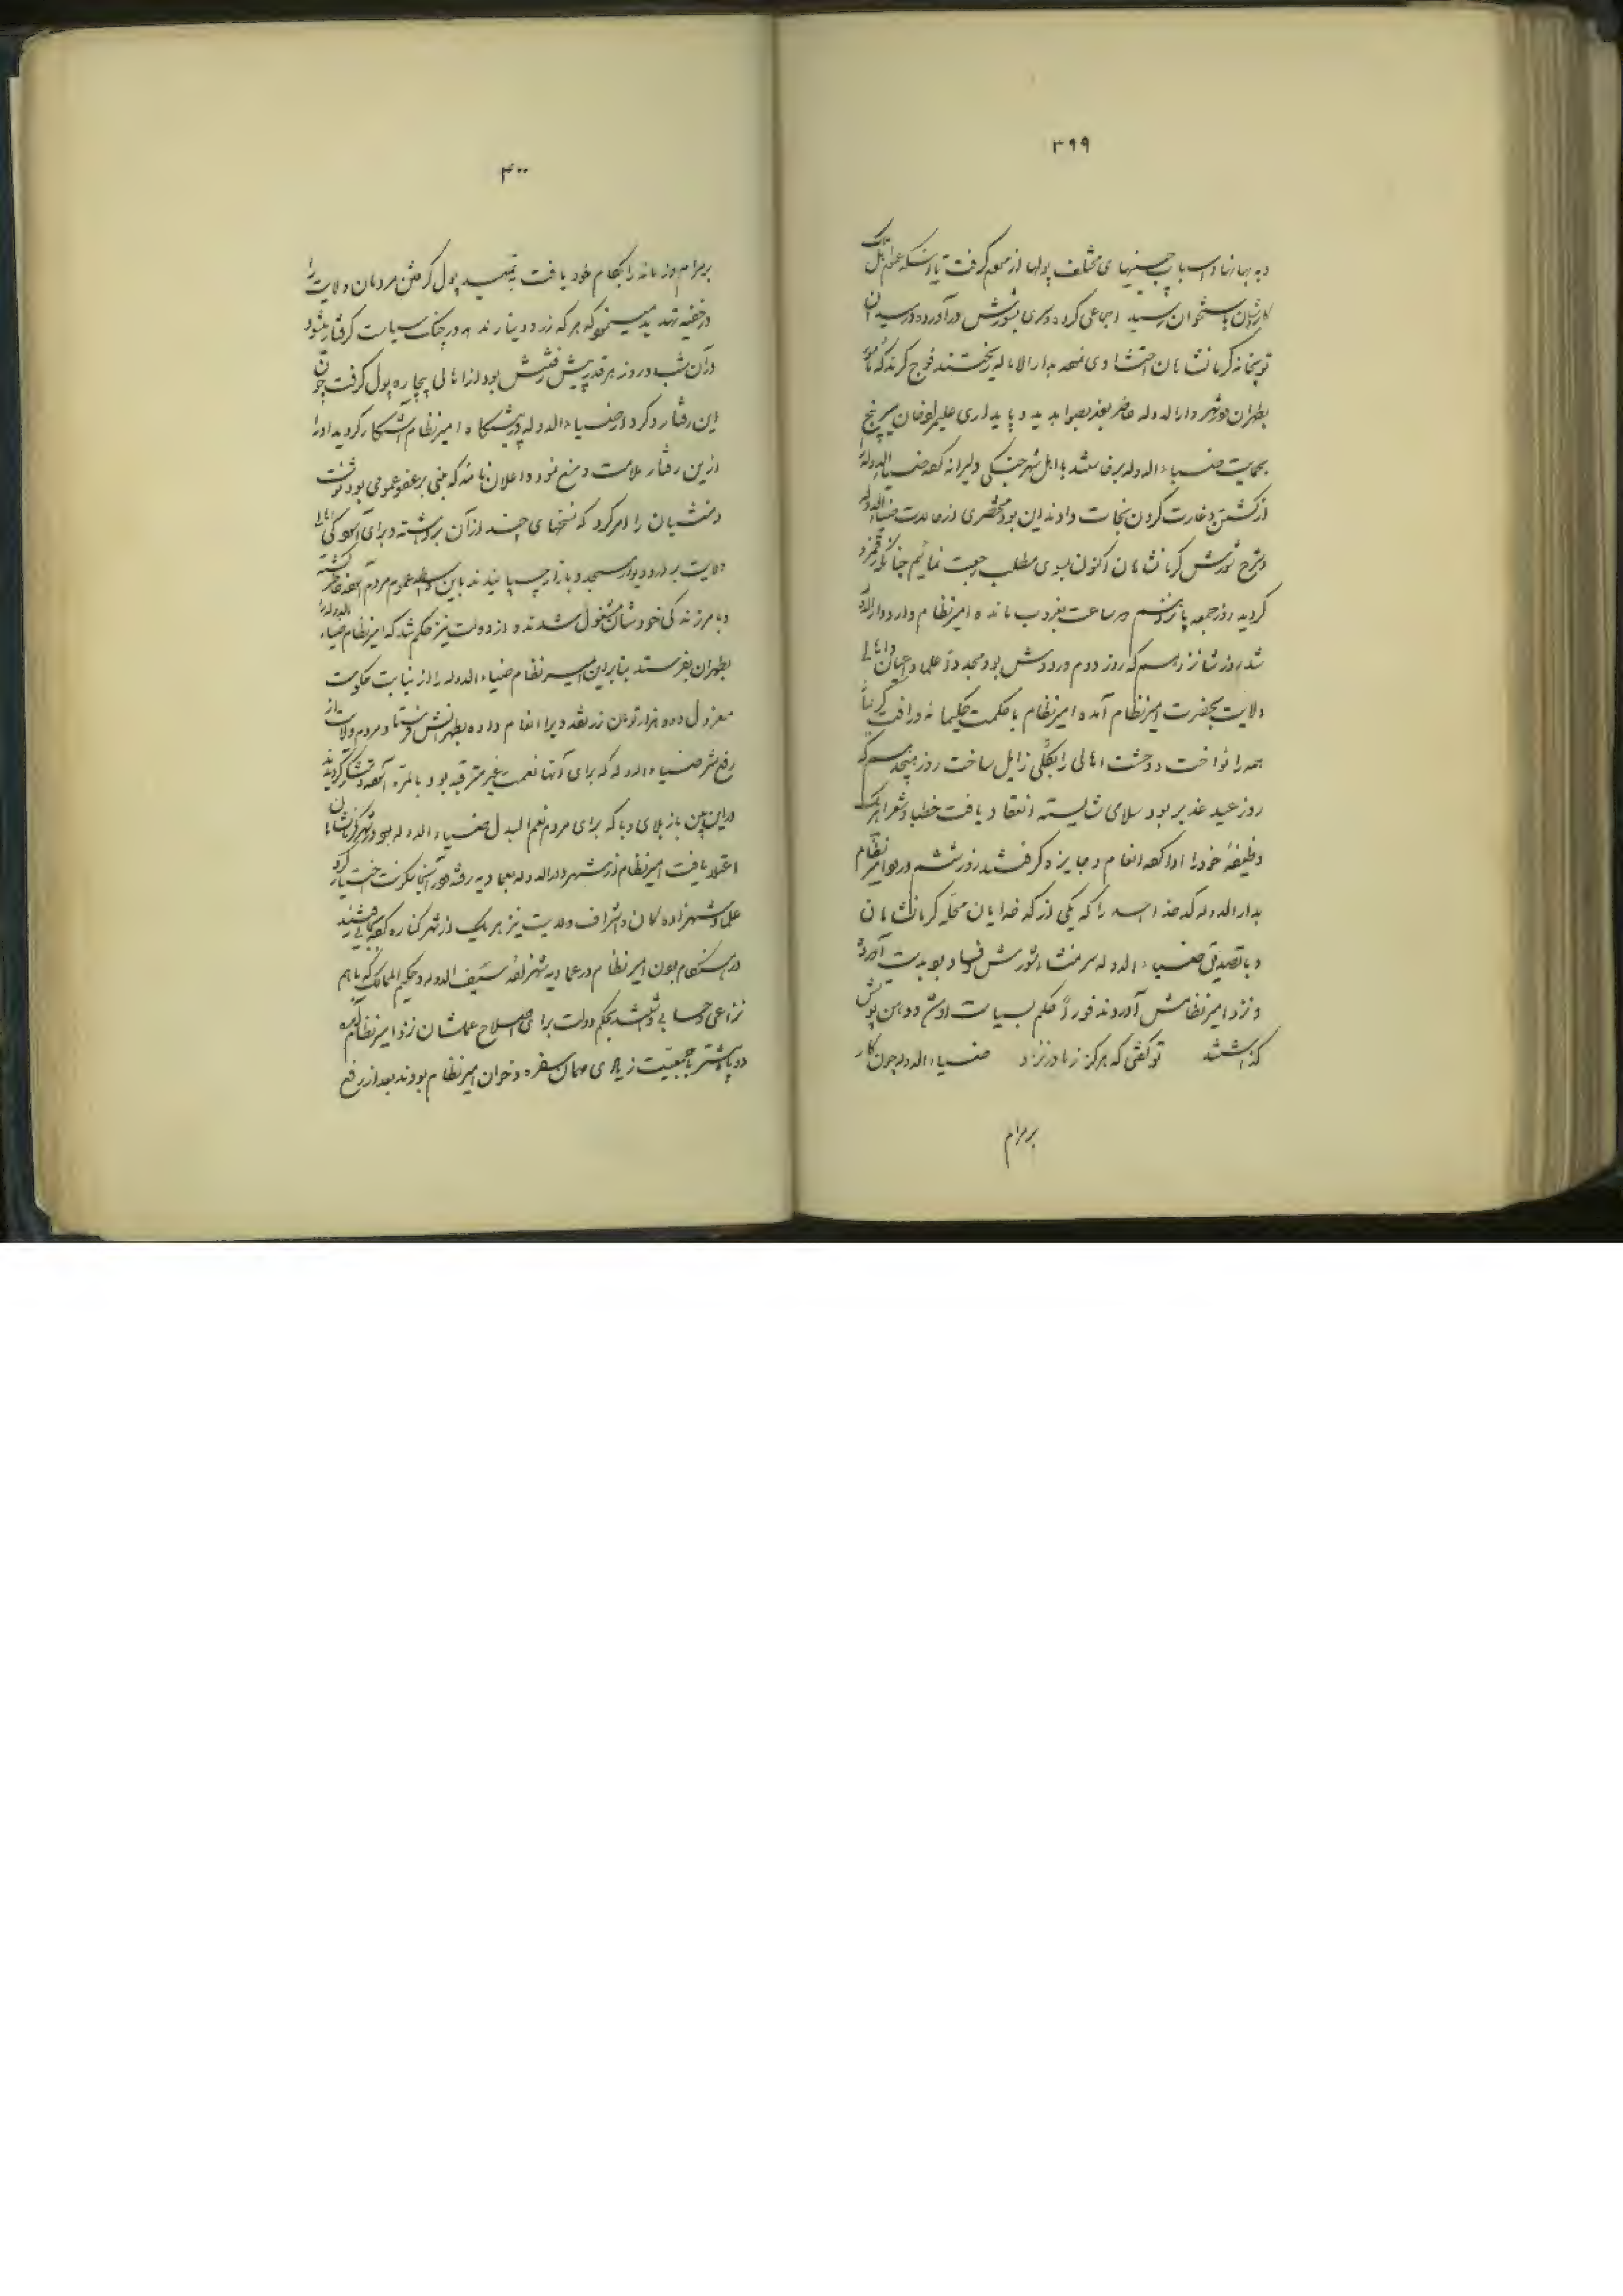 ۳۹۹
و به بهانها و اسباب چینیهای مختلف پولها از همه گرفت تا
کارشان باستخوان رسید اجماعی کرده سری بشورش درآورده در میدان
توپخانه کرمانشاهان احتشادی نموده بدارالایاله ریختند فوج کرند که مامور
بطهران و در شهر دارالدوله حاضر بودند بصوابدید و پایداری علیمرادخان میرپنج
بحمایت ضیاءالدوله برخاستند با اهل شهر جنگی دلیرانه کرده ضیاءالدوله را
از کشتن و غارت کردن نجات دادند این بود مختصری از حالات ضیاءالدوله
و شرح شورش کرمانشاهان اکنون بسوی مطلب رجعت نمائیم چنانکه
گردید روز جمعه پانزدهم دو ساعت بغروب مانده امیرنظام وارد دارالدوله
شد روز شانزدهم که روز دوم ورودش بود مجدداً علما و اعیان و اهالی
ولایت بحضرت امیرنظام آمده امیرنظام با حکمت حکیمانه و رافت کریمانه
همه را نواخت و وحشت اهالی را بکلی زایل ساخت روز هیجدهم که
روز عید غدیر بود سلامی شایسته انعقاد یافت خطبا و شعرا هر یک
وظیفهٔ خود را ادا کرده انعام و جایزه گرفتند روز ششم ورود امیرنظام
بدارالدوله کدخدا اسد را که یکی از کدخدایان محلهٔ کرمانشاهان
و با تصدیق ضیاءالدوله سرمنشاء شورش و فساد بود بدست آورده
و نزد امیرنظامش آوردند فوراً حکم بسیاست او شد و در دهن توپش
گذاشتند توگفتی که هرگز ز مادر نزاد ضیاءالدوله چون کار
بر مرام
۴۰۰
بر مرام و زمانه را بکام خود یافت بتمهید پول گرفتن مردمان ولایت را
در خفیه تهدید مینمود که هر که زر و دینار ندهد در چنگ سیاست گرفتار میشود
در آن شب و روز هر قدر پیش رفتش بود از اهالی بیچاره پول گرفت چون
این رفتار و کردار ضیاءالدوله در پیشگاه امیرنظام آشکار گردید او را
ازین رفتار ملامت و منع نمود و اعلان نامه که مبنی بر عفو عمومی بود نوشت
و منشیان را امر کرد که نسخهای چند از آن برداشته و برای آسودگی اهالی
ولایت بر در و دیوار مسجد و بازار چسپانیدند باین واسطه عموم مردم آسوده خاطر گشته
و بامر زندگی خودشان مشغول شدند و از دولت نیز حکم شد که امیرنظام ضیاءالدوله را
بطهران بفرستد بنابراین امیرنظام ضیاءالدوله را از نیابت حکومت
معزول و دو هزار تومان زر نقد ویرا انعام داده بطهرانش فرستاد مردم ولایت از
رفع شر ضیاءالدوله که برای آنها نعمت غیر مترقبه بود بالمره آسوده و متشکر گردیدند
در این بین باز بلای وبا که برای مردم نعم البدل ضیاءالدوله بود در شهر کرمانشاهان
اشتعال یافت امیرنظام از شهر دارالدوله بعمادیه رفته در آنجا سکونت اختیار کرد
علما و شهزادهگان و اشراف ولایت نیز هر یک از شهر کناره کرده بجائی
در هنگام بودن امیرنظام در عمادیه شهزاده سیف الدوله و حکیم الممالک که با هم
نزاعی و حسابی داشتند بحکم دولت برای اصلاح عملشان نزد امیرنظام آمده
دو ماه بیشتر با جمعیت زیادی مهمان سفره و خوان امیرنظام بودند بعد از رفع